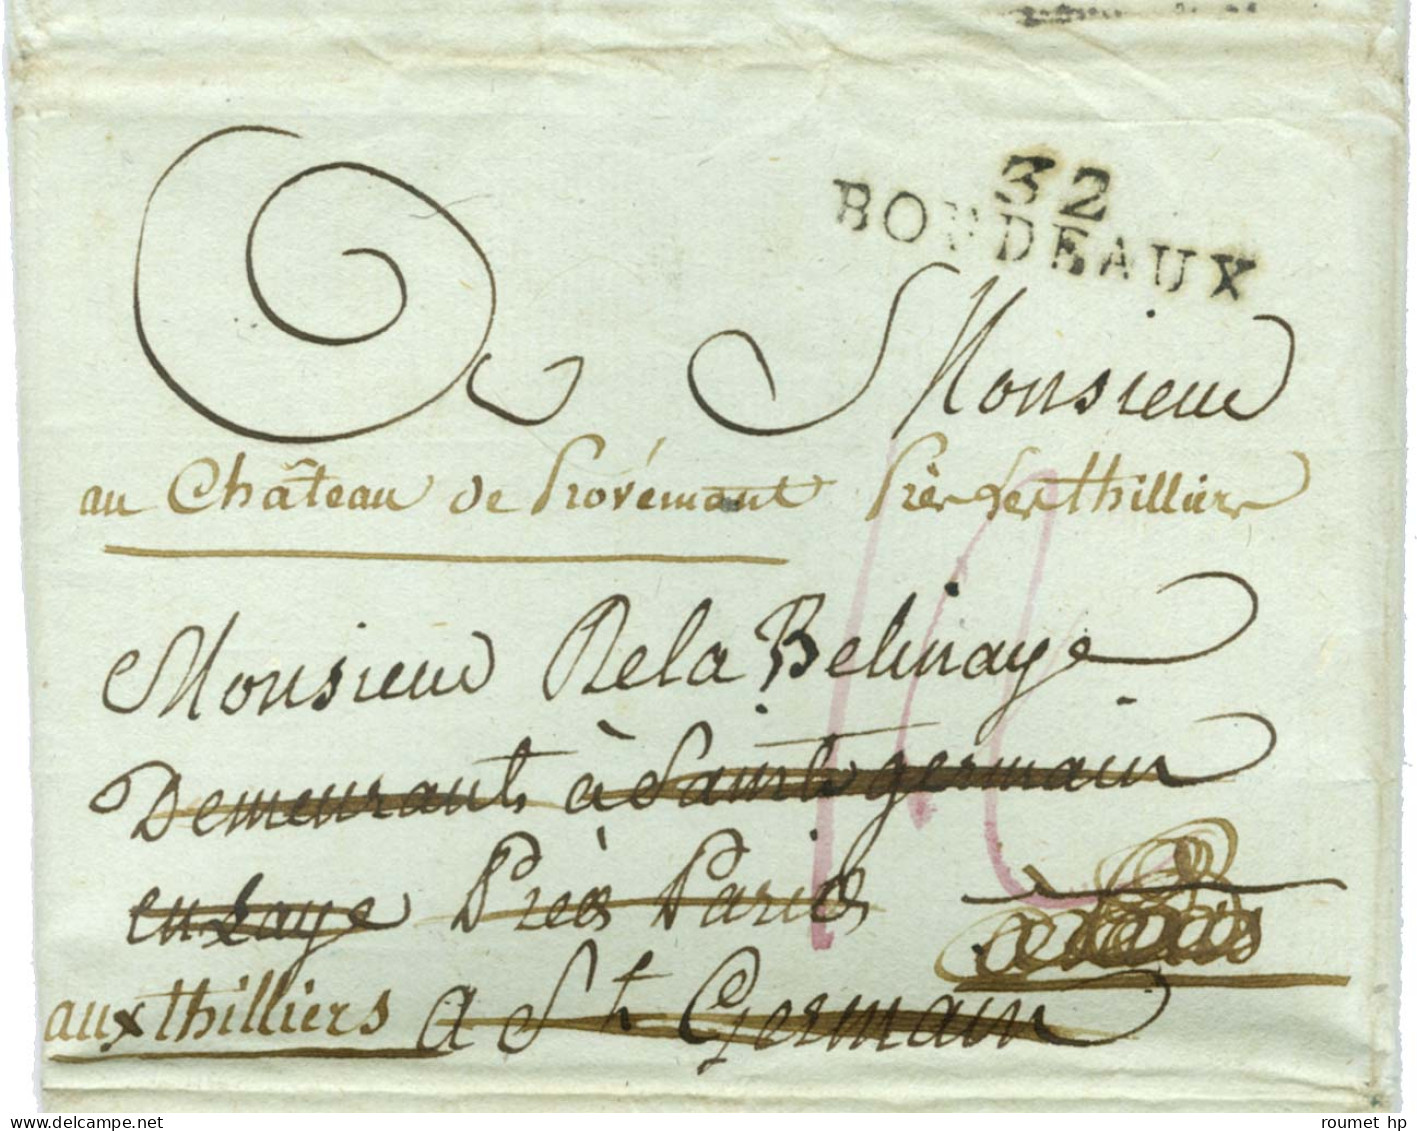 32
BORDEAUX
A Monsieur
au Château de Provémont Près Les thilliers
Monsieur De la Belinaye
Demeurant à Saint germain
en Laye Près Paris
aux thilliers A St Germain
roumet hp